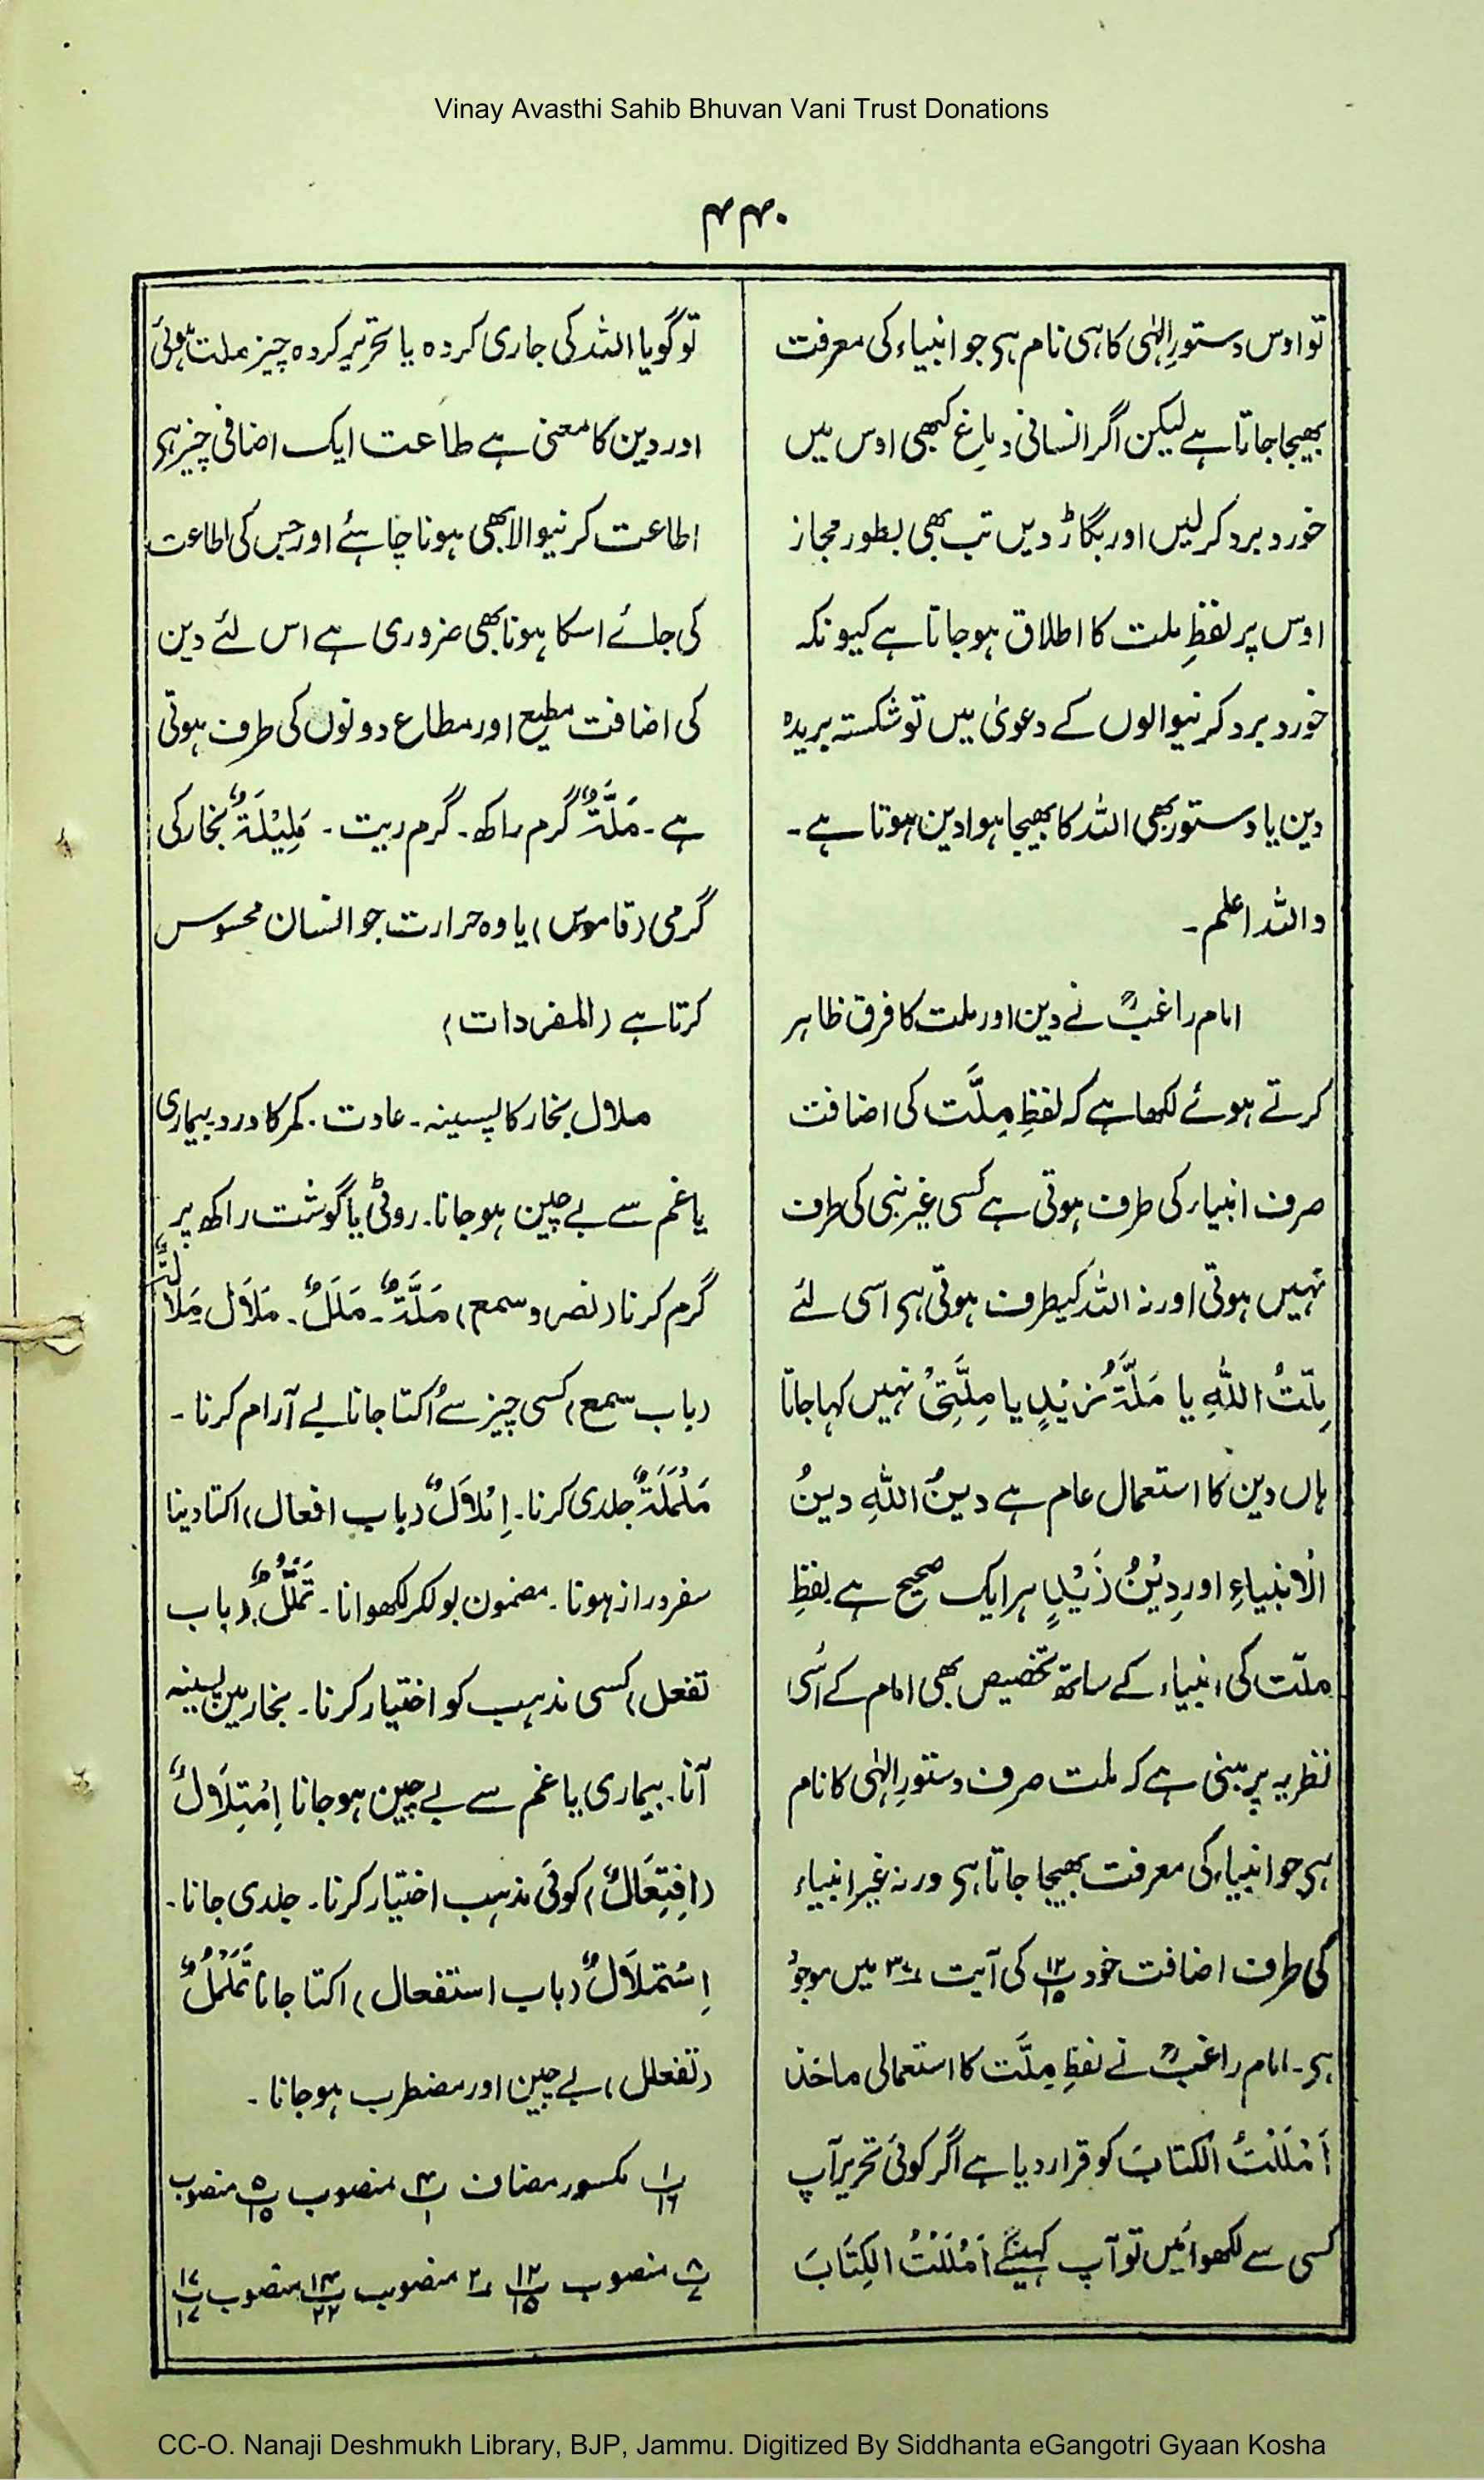 Vinay Avasthi Sahib Bhuvan Vani Trust Donations
۴۴۰
تو اوس دستورِ الٰہی کا ہی نام ہی جو انبیاء کی معرفت
بھیجا جاتا ہے لیکن اگر انسانی دماغ کبھی اوس میں
خورد برد کر لیں اور بگاڑ دیں تب بھی بطور مجاز
اوس پر لفظِ ملت کا اطلاق ہو جاتا ہے کیونکہ
خورد برد کرنیوالوں کے دعویٰ میں تو شکستہ بریدہ
دین یا دستور بھی اللہ کا بھیجا ہوا دین ہوتا ہے۔
واللہ اعلم۔
امام راغبؒ نے دین اور ملت کا فرق ظاہر
کرتے ہوئے لکھا ہے کہ لفظِ مِلَّت کی اضافت
صرف انبیاء کی طرف ہوتی ہے کسی غیر نبی کی طرف
نہیں ہوتی اور نہ اللہ کیطرف ہوتی ہی اسی لئے
مِلّتُ اللہِ یا مَلَّۃُ زَیْدٍ یا مِلَّتِیْ نہیں کہا جاتا
ہاں دین کا استعمال عام ہے دینُ اللہِ دینُ
الْاَنبیاءِ اور دِیْنُ زَیْدٍ ہر ایک صحیح ہے لفظِ
ملّت کی انبیاء کے ساتھ تخصیص بھی امام کے اُسی
نظریہ پر مبنی ہے کہ ملت صرف دستورِ الٰہی کا نام
ہی جو انبیاء کی معرفت بھیجا جاتا ہی ورنہ غیر انبیاء
کی طرف اضافت خود پ۱۲/۱۵ کی آیت ۳۷ میں موجود
ہی۔ امام راغبؒ نے لفظِ مِلَّت کا استعمالی ماخذ
اَمْلَلْتُ الکتابَ کو قرار دیا ہے اگر کوئی تحریر آپ
کسی سے لکھوائیں تو آپ کہینگے اَمْلَلْتُ الکِتَابَ
تو گویا اللہ کی جاری کردہ یا تحریر کردہ چیز ملت ہوئی
اور دین کا معنی ہے طاعت ایک اضافی چیز ہی
اطاعت کرنیوالا بھی ہونا چاہئے اور جس کی اطاعت
کی جائے اسکا ہونا بھی ضروری ہے اس لئے دین
کی اضافت مطیع اور مطاع دونوں کی طرف ہوتی
ہے۔ مَلَّۃٌ گرم راکھ۔ گرم ریت۔ مَلِیْلَۃٌ بخار کی
گرمی (قاموس) یا وہ حرارت جو انسان محسوس
کرتا ہے (المفردات)
ملال بخار کا پسینہ۔ عادت۔ کمر کا درد بیماری
یا غم سے بے چین ہو جانا۔ روٹی یا گوشت راکھ پر
گرم کرنا (نصر و سمع) مَلَّۃٌ۔ مَلَلٌ۔ مَلَالٌ مَلَالَۃٌ
(باب سمع) کسی چیز سے اُکتا جانا بے آرام کرنا۔
مَلْمَلَۃٌ جلدی کرنا۔ اِمْلَالٌ (باب افعال) اکتا دینا
سفر دراز ہونا۔ مضمون بولکر لکھوانا۔ تَمَلُّلٌ (باب
تفعل) کسی مذہب کو اختیار کرنا۔ بخار میں پسینہ
آنا۔ بیماری یا غم سے بے چین ہو جانا اِمْتِلَالٌ
(اِفْتِعَالٌ) کوئی مذہب اختیار کرنا۔ جلدی جانا۔
اِسْتِمْلَالٌ (باب استفعال) اکتا جانا تَمَلْمُلٌ
(تفعلل) بے چین اور مضطرب ہو جانا۔
پ۱/۱۶ مکسور مضاف پ۴/۱ منصوب پ۵/۱۵ منصوب
پ۸/۷ منصوب پ۱۲/۱۵ ۲ منصوب پ۱۴/۲۲ منصوب پ۱۷/۱۷
CC-O. Nanaji Deshmukh Library, BJP, Jammu. Digitized By Siddhanta eGangotri Gyaan Kosha